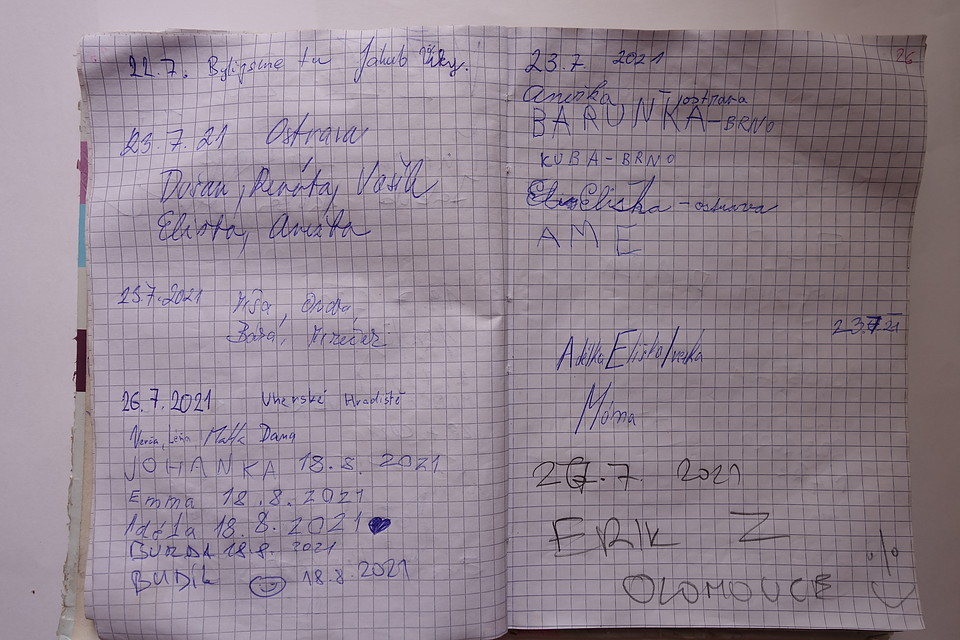 22.7. Byli jsme tu Jakub
23.7.21 Ostrava
Dušan, Renáta, Vašík
Eliška, Anežka
23.7.2021 Míša, Ondra,
Bára,
26.7.2021 Uherské Hradiště
Verča, Maťk Dana
JOHANKA 18.8.2021
Emma 18.8.2021
Adéla 18.8.2021
18.8.2021
BUDík 18.8.2021
26
23.7 2021
Anežka - ostrava
BARUNKA-BRNO
KUBA-BRNO
Eliška - ostrava
AME
23.7 21
Adélka Eliška
Máma
7 2021
ERIK Z
OLOMOUCE